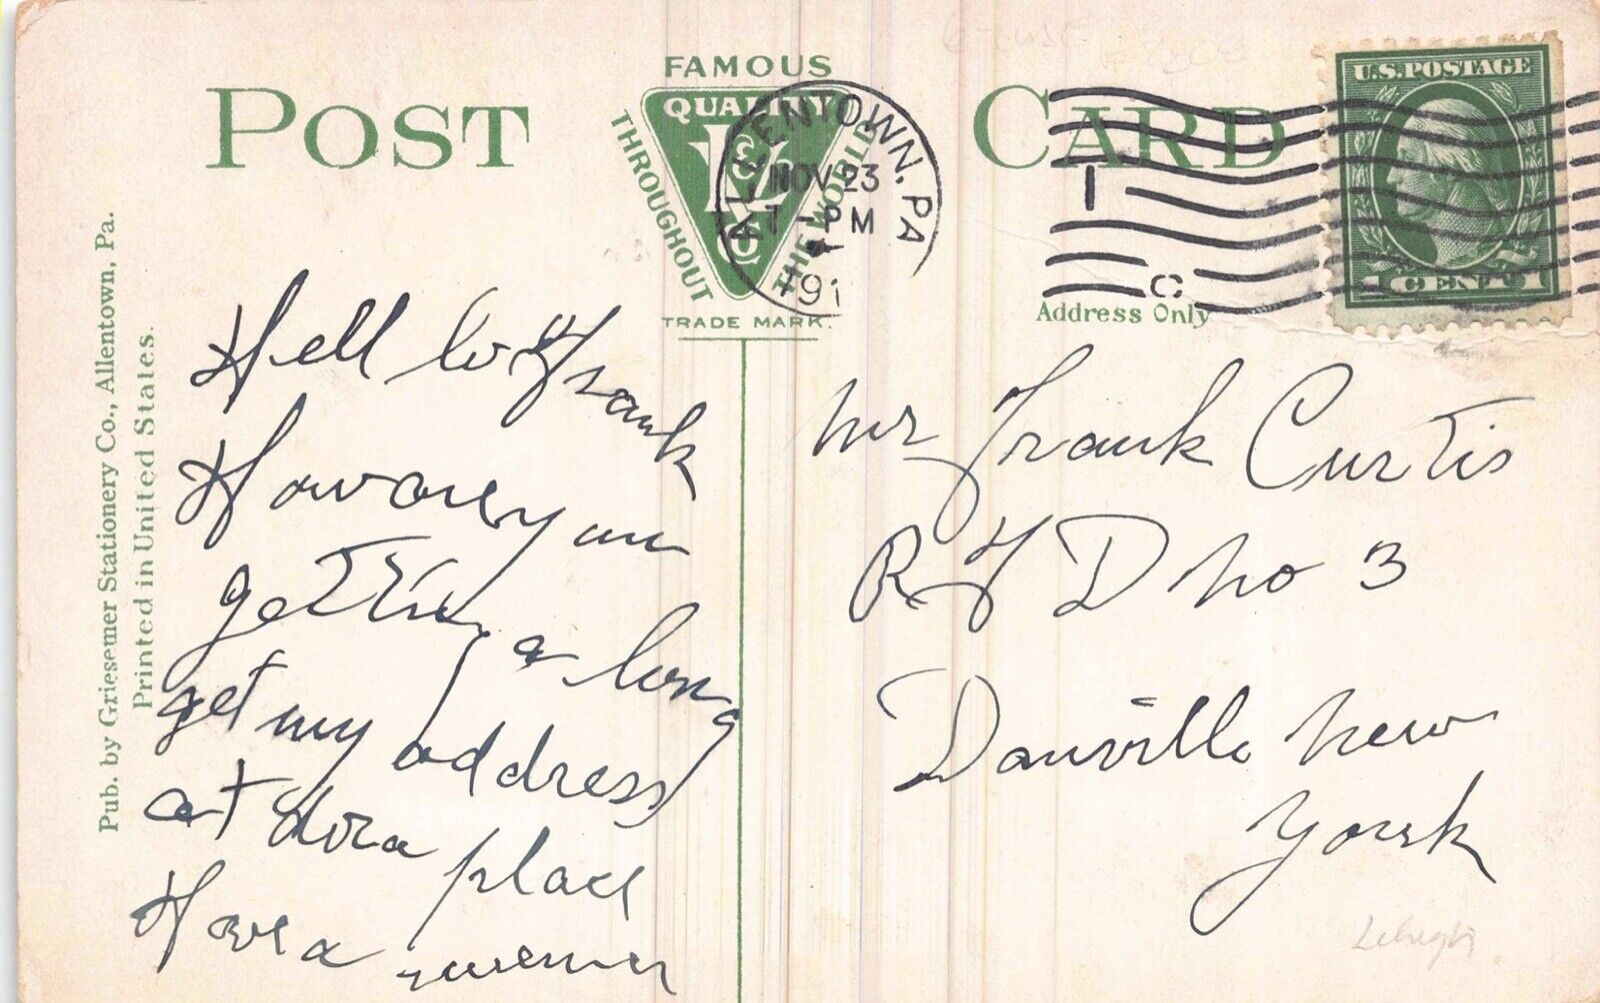 POST CARD
FAMOUS
QUALITY
THROUGHOUT
THE WORLD
TRADE MARK.
ALLENTOWN, PA
NOV 23
7 - PM
191
U.S. POSTAGE
1 CENT 1
Address Only
Pub. by Griesemer Stationery Co., Allentown, Pa.
Printed in United States.
Hell lo Frank
How are you
getting a long
get my address
at Hora place
Hora
Mr Frank Curtis
R F D No 3
Danville New
York
Lehigh